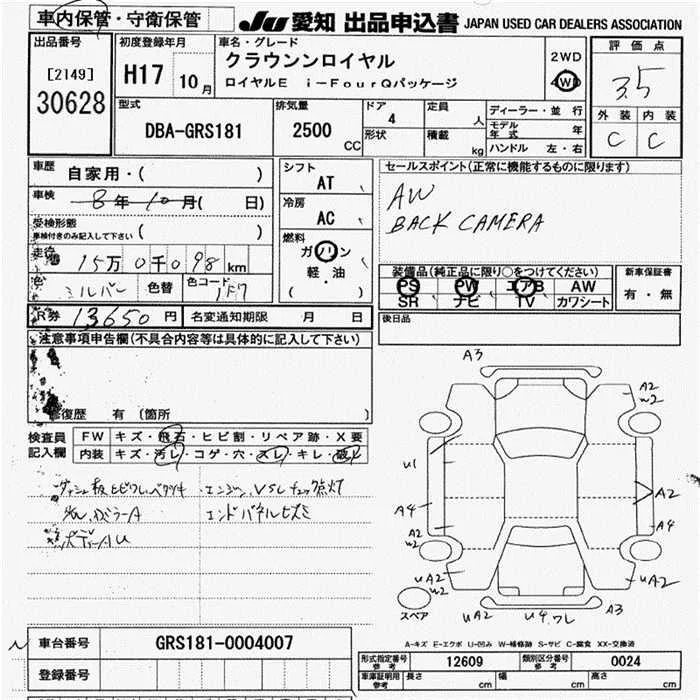 車内保管・守衛保管 JU 愛知 出品申込書 JAPAN USED CAR DEALERS ASSOCIATION
出品番号
[2149]
30628
初度登録年月
H17 10月
車名・グレード
クラウンンロイヤル
ロイヤルE i-FourQパッケージ
2WD
4WD
評価点
3.5
外装 内装
C C
型式
DBA-GRS181
排気量
2500 CC
ドア
4
形状
定員
人
積載
kg
ディーラー・並行
モデル年式 年
ハンドル 左・右
車歴 自家用・( )
車検 8年10月( 日)
受検形態
車検付きのみ記入して下さい ( )
走行 15万0千098km
色 シルバー 色替 色コード 1F7
R券 13650円 名変通知期限 月 日
シフト
AT
冷房
AC
燃料
ガソリン
軽・油
( )
セールスポイント(正常に機能するものに限ります)
AW
BACK CAMERA
装備品(純正品に限り○をつけてください)
PS PW エアB AW
SR ナビ TV カワシート
新車保証書
有・無
後日品
注意事項申告欄(不具合内容等は具体的に記入して下さい)
修復歴 有(箇所 )
検査員記入欄
FW キズ・飛石・ヒビ割・リペア跡・X要
内装 キズ・汚レ・コゲ・穴・スレ・キレ・破レ
エンジン、VSCチェック点灯
エンドパネルヒズミ
ボディーAU
A3
A2
W2
U1
A4
A2
W2
A2
A4
UA2
W2
UA2
スペア
UA2
U4.ワレ
A3
A-キズ E-エクボ U-凹み W-補修跡 S-サビ C-腐食 XX-交換済
車台番号 GRS181-0004007
登録番号
形式指定番号 参考 12609 類別区分番号 参考 0024
車庫証明用 参考 長さ cm 幅 cm 高さ cm